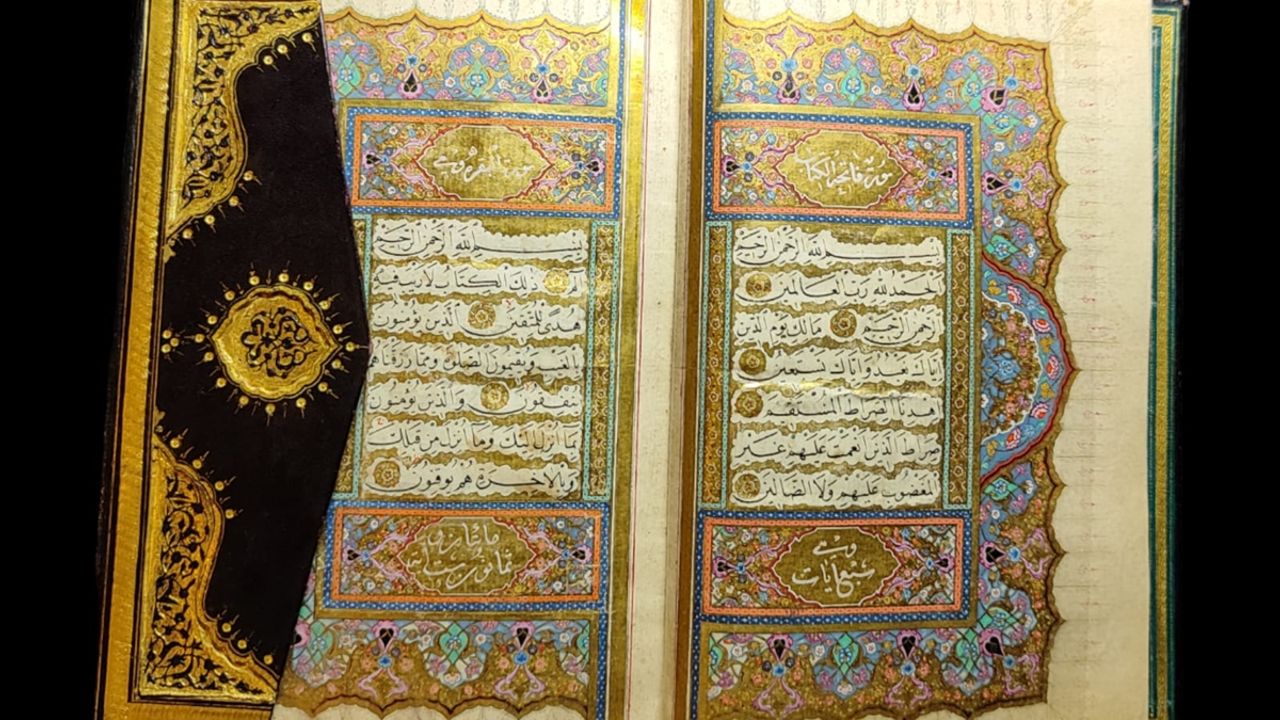 سورة فاتحة الكتاب
بِسْمِ اللّٰهِ الرَّحْمٰنِ الرَّحِيمِ
اَلْحَمْدُ لِلّٰهِ رَبِّ الْعَالَمِينَ
اَلرَّحْمٰنِ الرَّحِيمِ مَالِكِ يَوْمِ الدِّينِ
اِيَّاكَ نَعْبُدُ وَاِيَّاكَ نَسْتَعِينُ
اِهْدِنَا الصِّرَاطَ الْمُسْتَقِيمَ
صِرَاطَ الَّذِينَ اَنْعَمْتَ عَلَيْهِمْ غَيْرِ
الْمَغْضُوبِ عَلَيْهِمْ وَلَا الضَّالِّينَ
وهي
سبع ايات
سورة البقرة وهي
بِسْمِ اللّٰهِ الرَّحْمٰنِ الرَّحِيمِ
الٓمٓ ذٰلِكَ الْكِتَابُ لَا رَيْبَ فِيهِ
هُدًى لِلْمُتَّقِينَ اَلَّذِينَ يُؤْمِنُونَ
بِالْغَيْبِ وَيُقِيمُونَ الصَّلٰوةَ وَمِمَّا رَزَقْنَاهُمْ
يُنْفِقُونَ وَالَّذِينَ يُؤْمِنُونَ
بِمَا اُنْزِلَ اِلَيْكَ وَمَا اُنْزِلَ مِنْ قَبْلِكَ
وَبِالْاٰخِرَةِ هُمْ يُوقِنُونَ
مائتان و
ثمانون وست اية